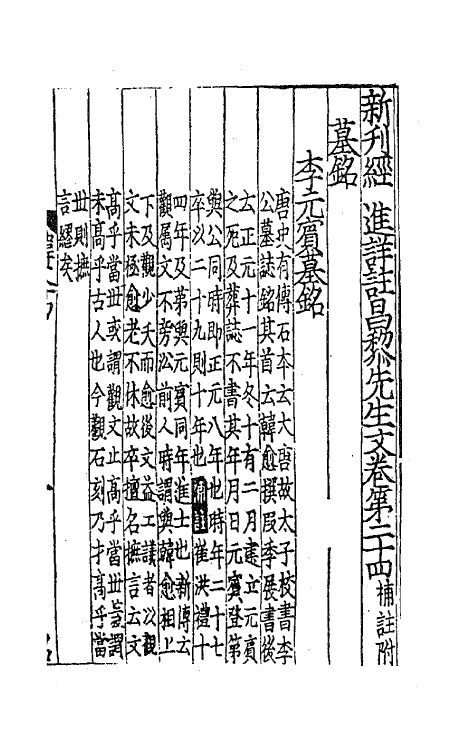 新刊經進詳註昌黎先生文卷第二十四 補註附
墓銘
李元賓墓銘
唐史有傳石本云大唐故太子校書李
公墓誌銘其首云韓愈撰段季展書後
云正元十一年冬十有二月建立元賓
之死及葬誌不書其年月日元賓登第
與公同時即正元八年也時年二十七
卒以二十九則十年也補註崔洪禮十
四年及第與元賓同年進士也新傳云
觀属文不旁㳂前人時謂與韓愈相上
下及觀少夭而愈後文益工議者以觀
文未極愈老不休故卒擅名撫言云文
高乎當世或謂觀文止高乎當世豈謂
未高乎古人也今觀石刻乃才高乎當
世則撫
言繆矣